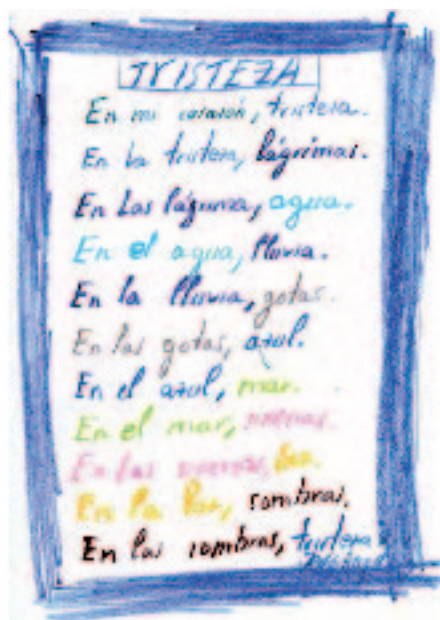 TRISTEZA
En mi corazón, tristeza.
En la tristeza, lágrimas.
En las lágrimas, agua.
En el agua, lluvia.
En la lluvia, gotas.
En las gotas, azul.
En el azul, mar.
En el mar,
En las
En la luz, sombras.
En las sombras, tristeza